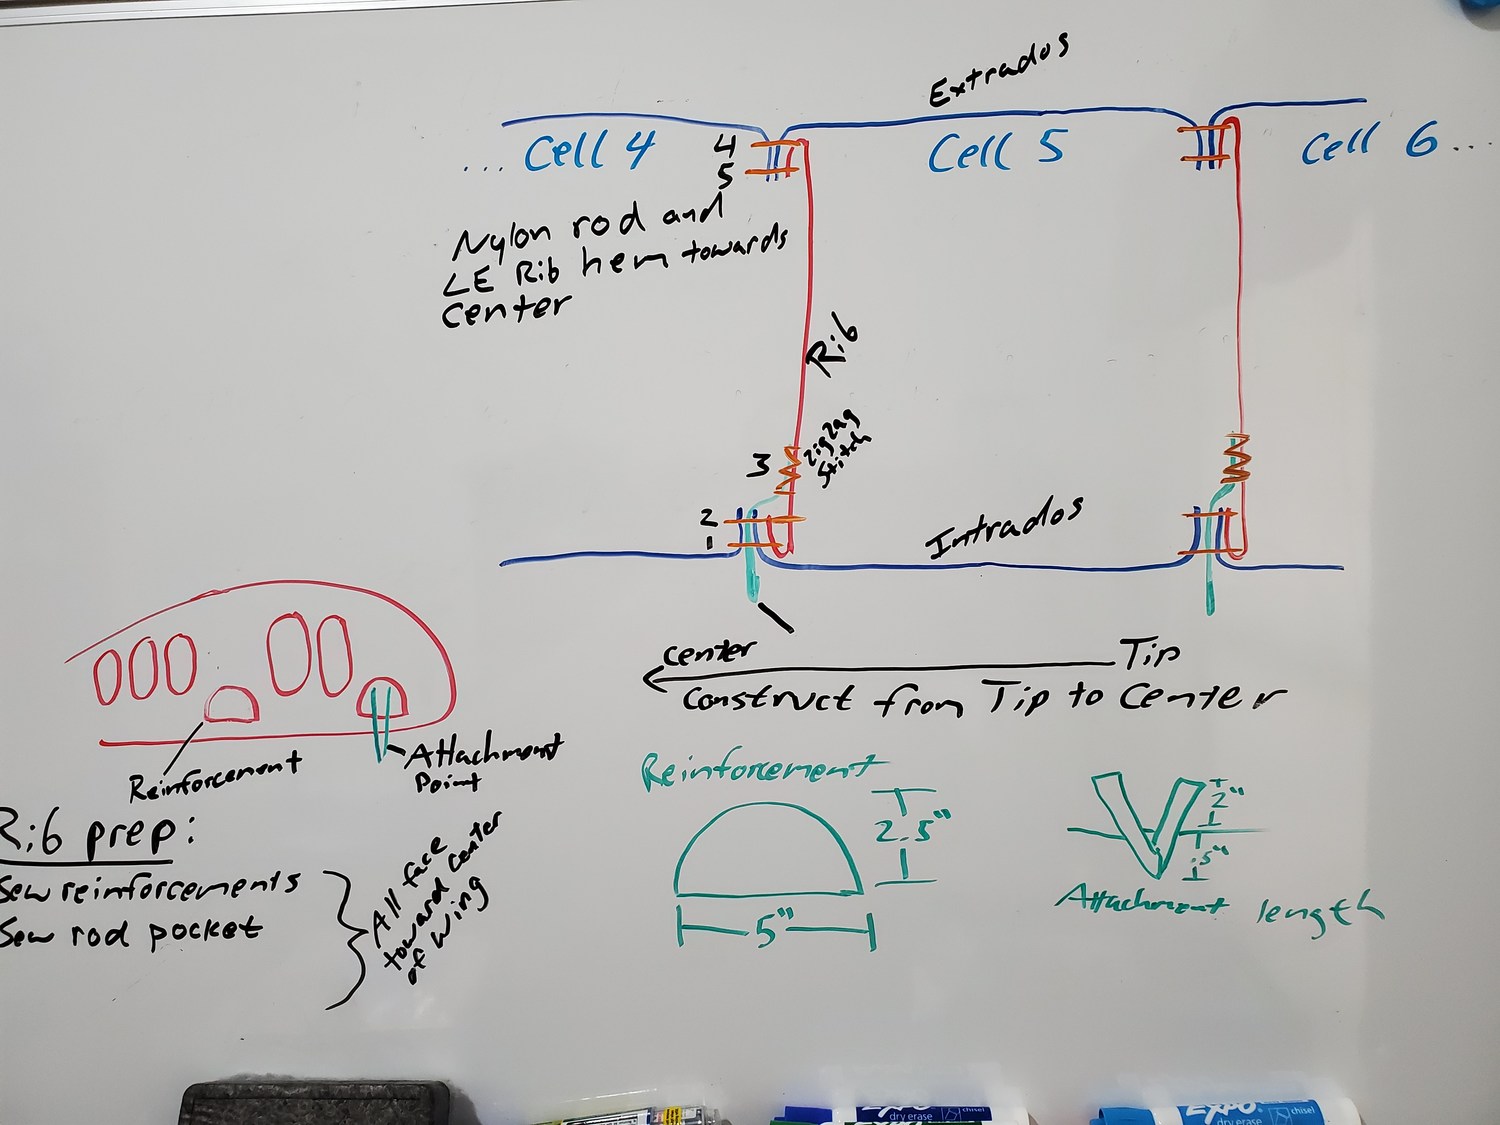 Extrados
... Cell 4
4
5
Cell 5
Cell 6 ...
Nylon rod and
LE Rib hem towards
center
Rib
3
zigzag
stitch
2
1
Intrados
center
Tip
Construct from Tip to Center
Reinforcement
Attachment
Point
Rib prep:
Sew reinforcements
Sew rod pocket
All face
toward center
of wing
Reinforcement
2.5"
5"
2"
.5"
Attachment length
EXPO
dry erase
chisel
EXPO
dry erase
chisel